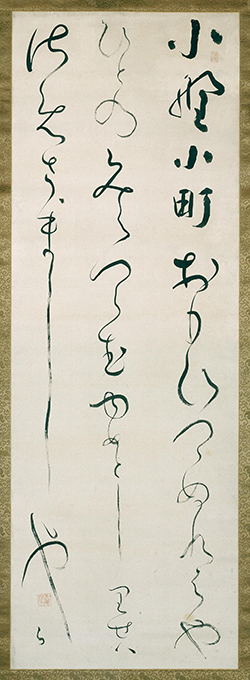 小野小町おもひつゝぬれはや
ひとのみえつらむゆめとしりせは
さめさらまし